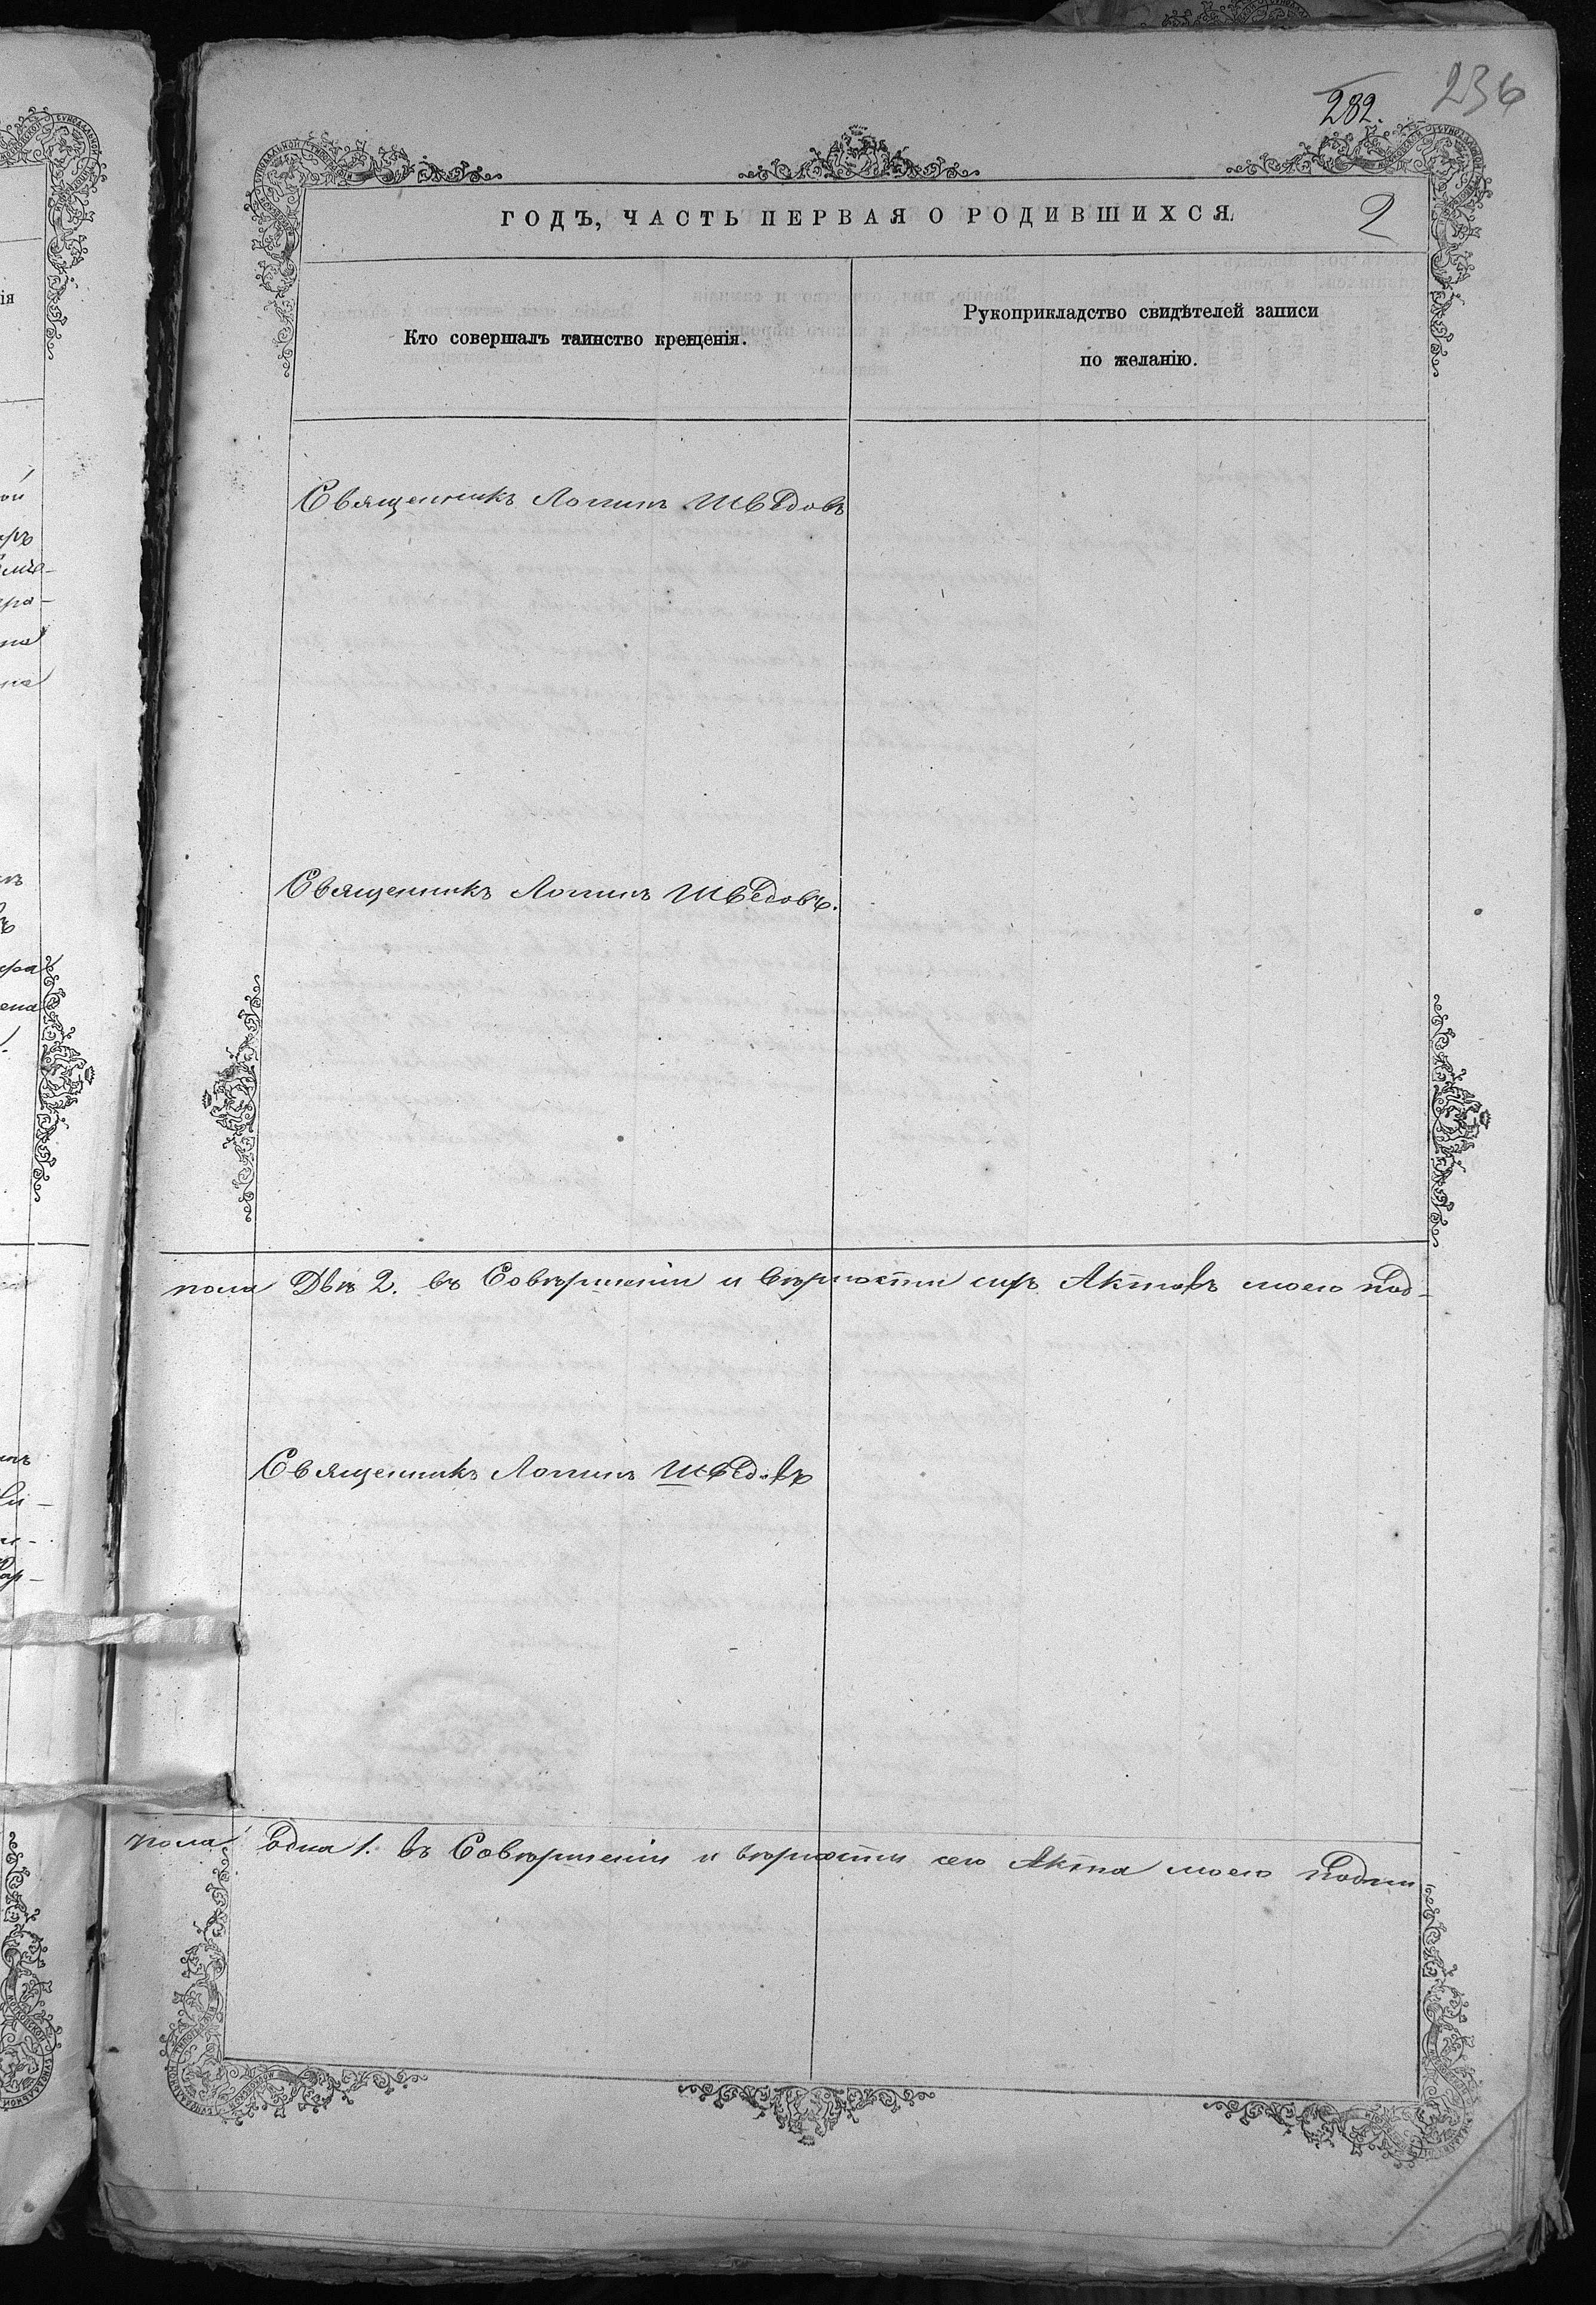 236
282.
ГОДЪ, ЧАСТЬ ПЕРВАЯ О РОДИВШИХСЯ
2
Кто совершалъ таинство крещенія.
Рукоприкладство свидѣтелей записи
по желанію.
Священникъ Логинъ Шведовъ
Священникъ Логинъ Шведовъ.
пола Двѣ 2. въ Совершеніи и вѣрности сихъ Актовъ моею под-
Священникъ Логинъ Шведовъ
пола одна 1. въ Совершеніи и вѣрности сего Акта моею подпи